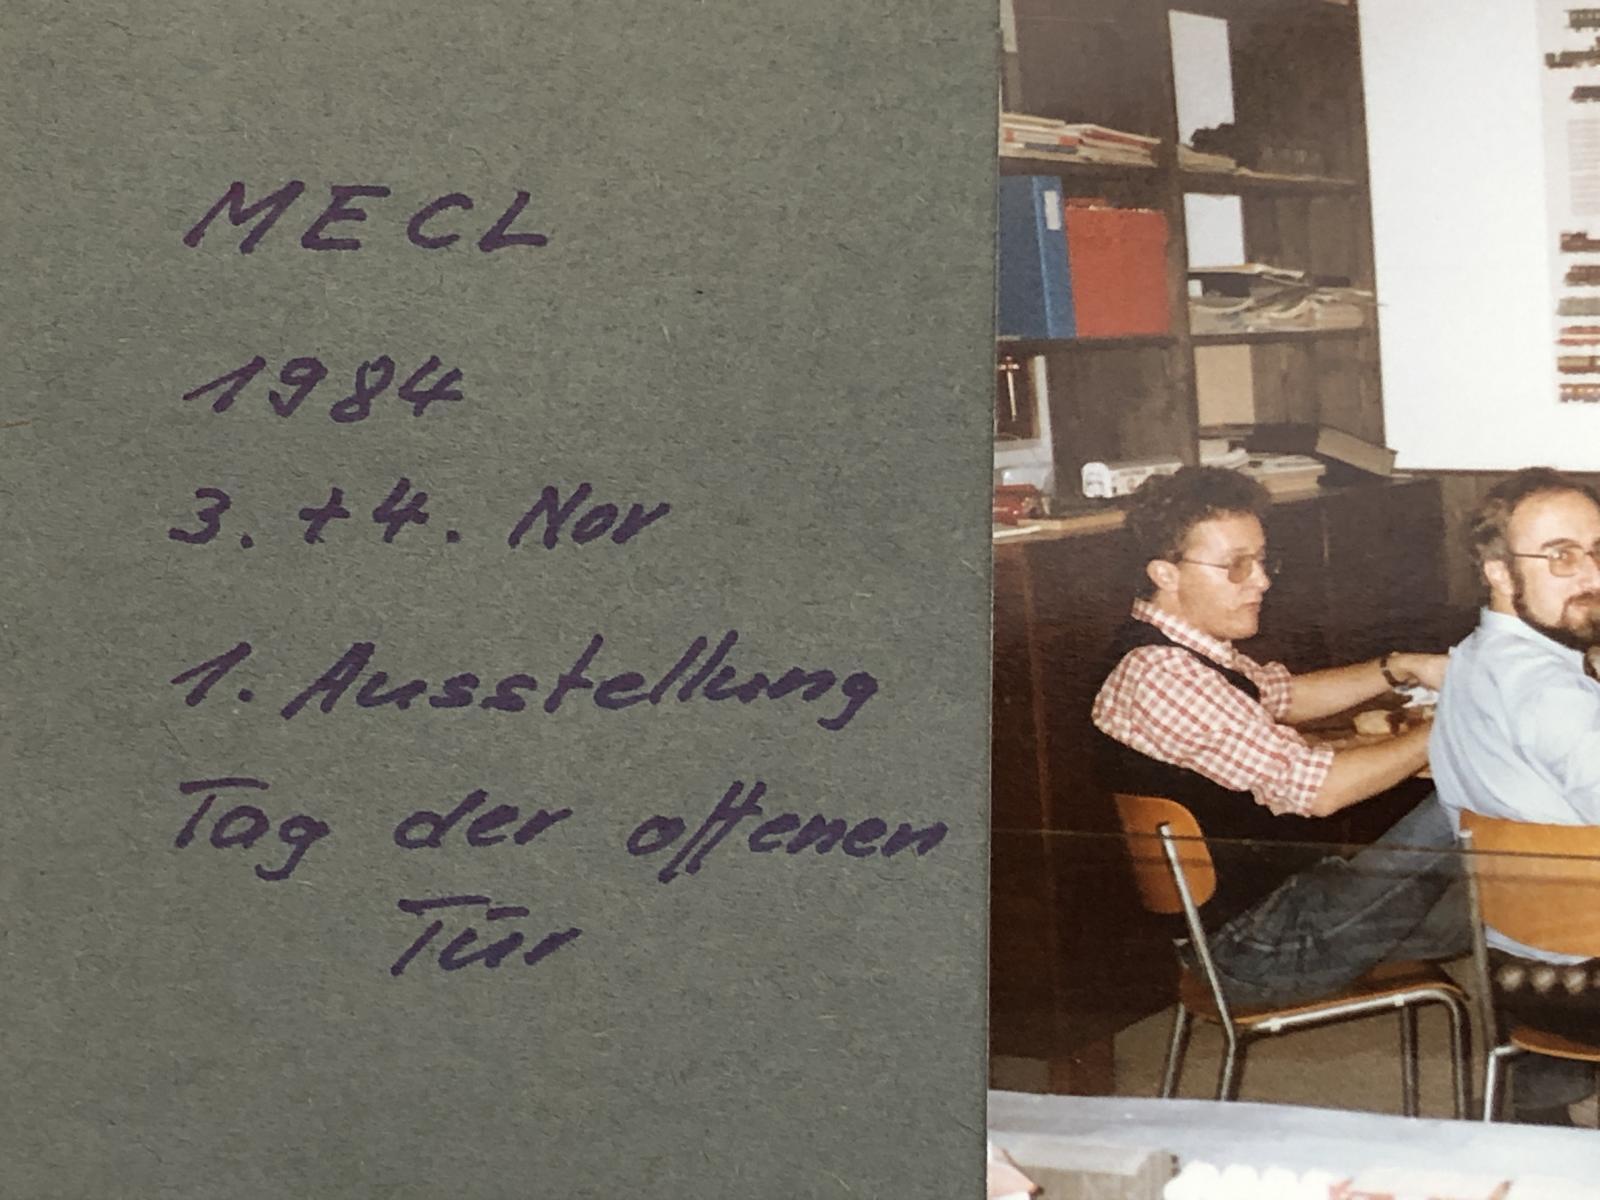 MECL
1984
3. + 4. Nov
1. Ausstellung
Tag der offenen
Tür